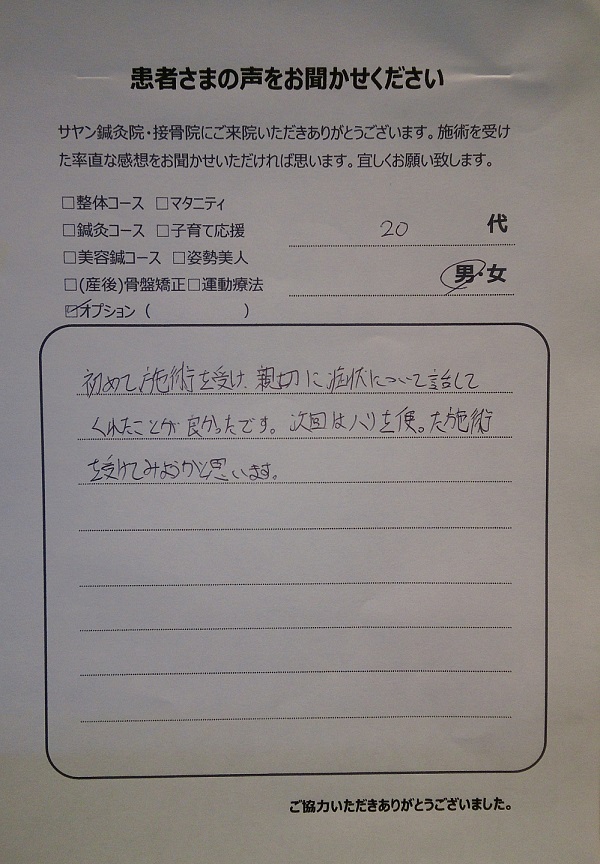 患者さまの声をお聞かせください
サヤン鍼灸院・接骨院にご来院いただきありがとうございます。施術を受け
た率直な感想をお聞かせいただければ思います。宜しくお願い致します。
□整体コース □マタニティ
□鍼灸コース □子育て応援
20 代
□美容鍼コース □姿勢美人
男・女
□(産後)骨盤矯正□運動療法
☑オプション ( )
初めて施術を受け、親切に症状について話して
くれたことが良かったです。次回はハリを使った施術
を受けてみようかと思います。
ご協力いただきありがとうございました。